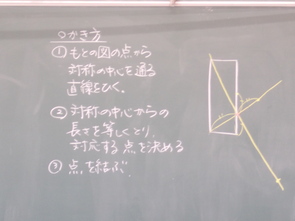 かき方
① もとの図の点から
対称の中心を通る
直線をひく。
② 対称の中心からの
長さを等しくとり、
対応する点を決める
③ 点を結ぶ。